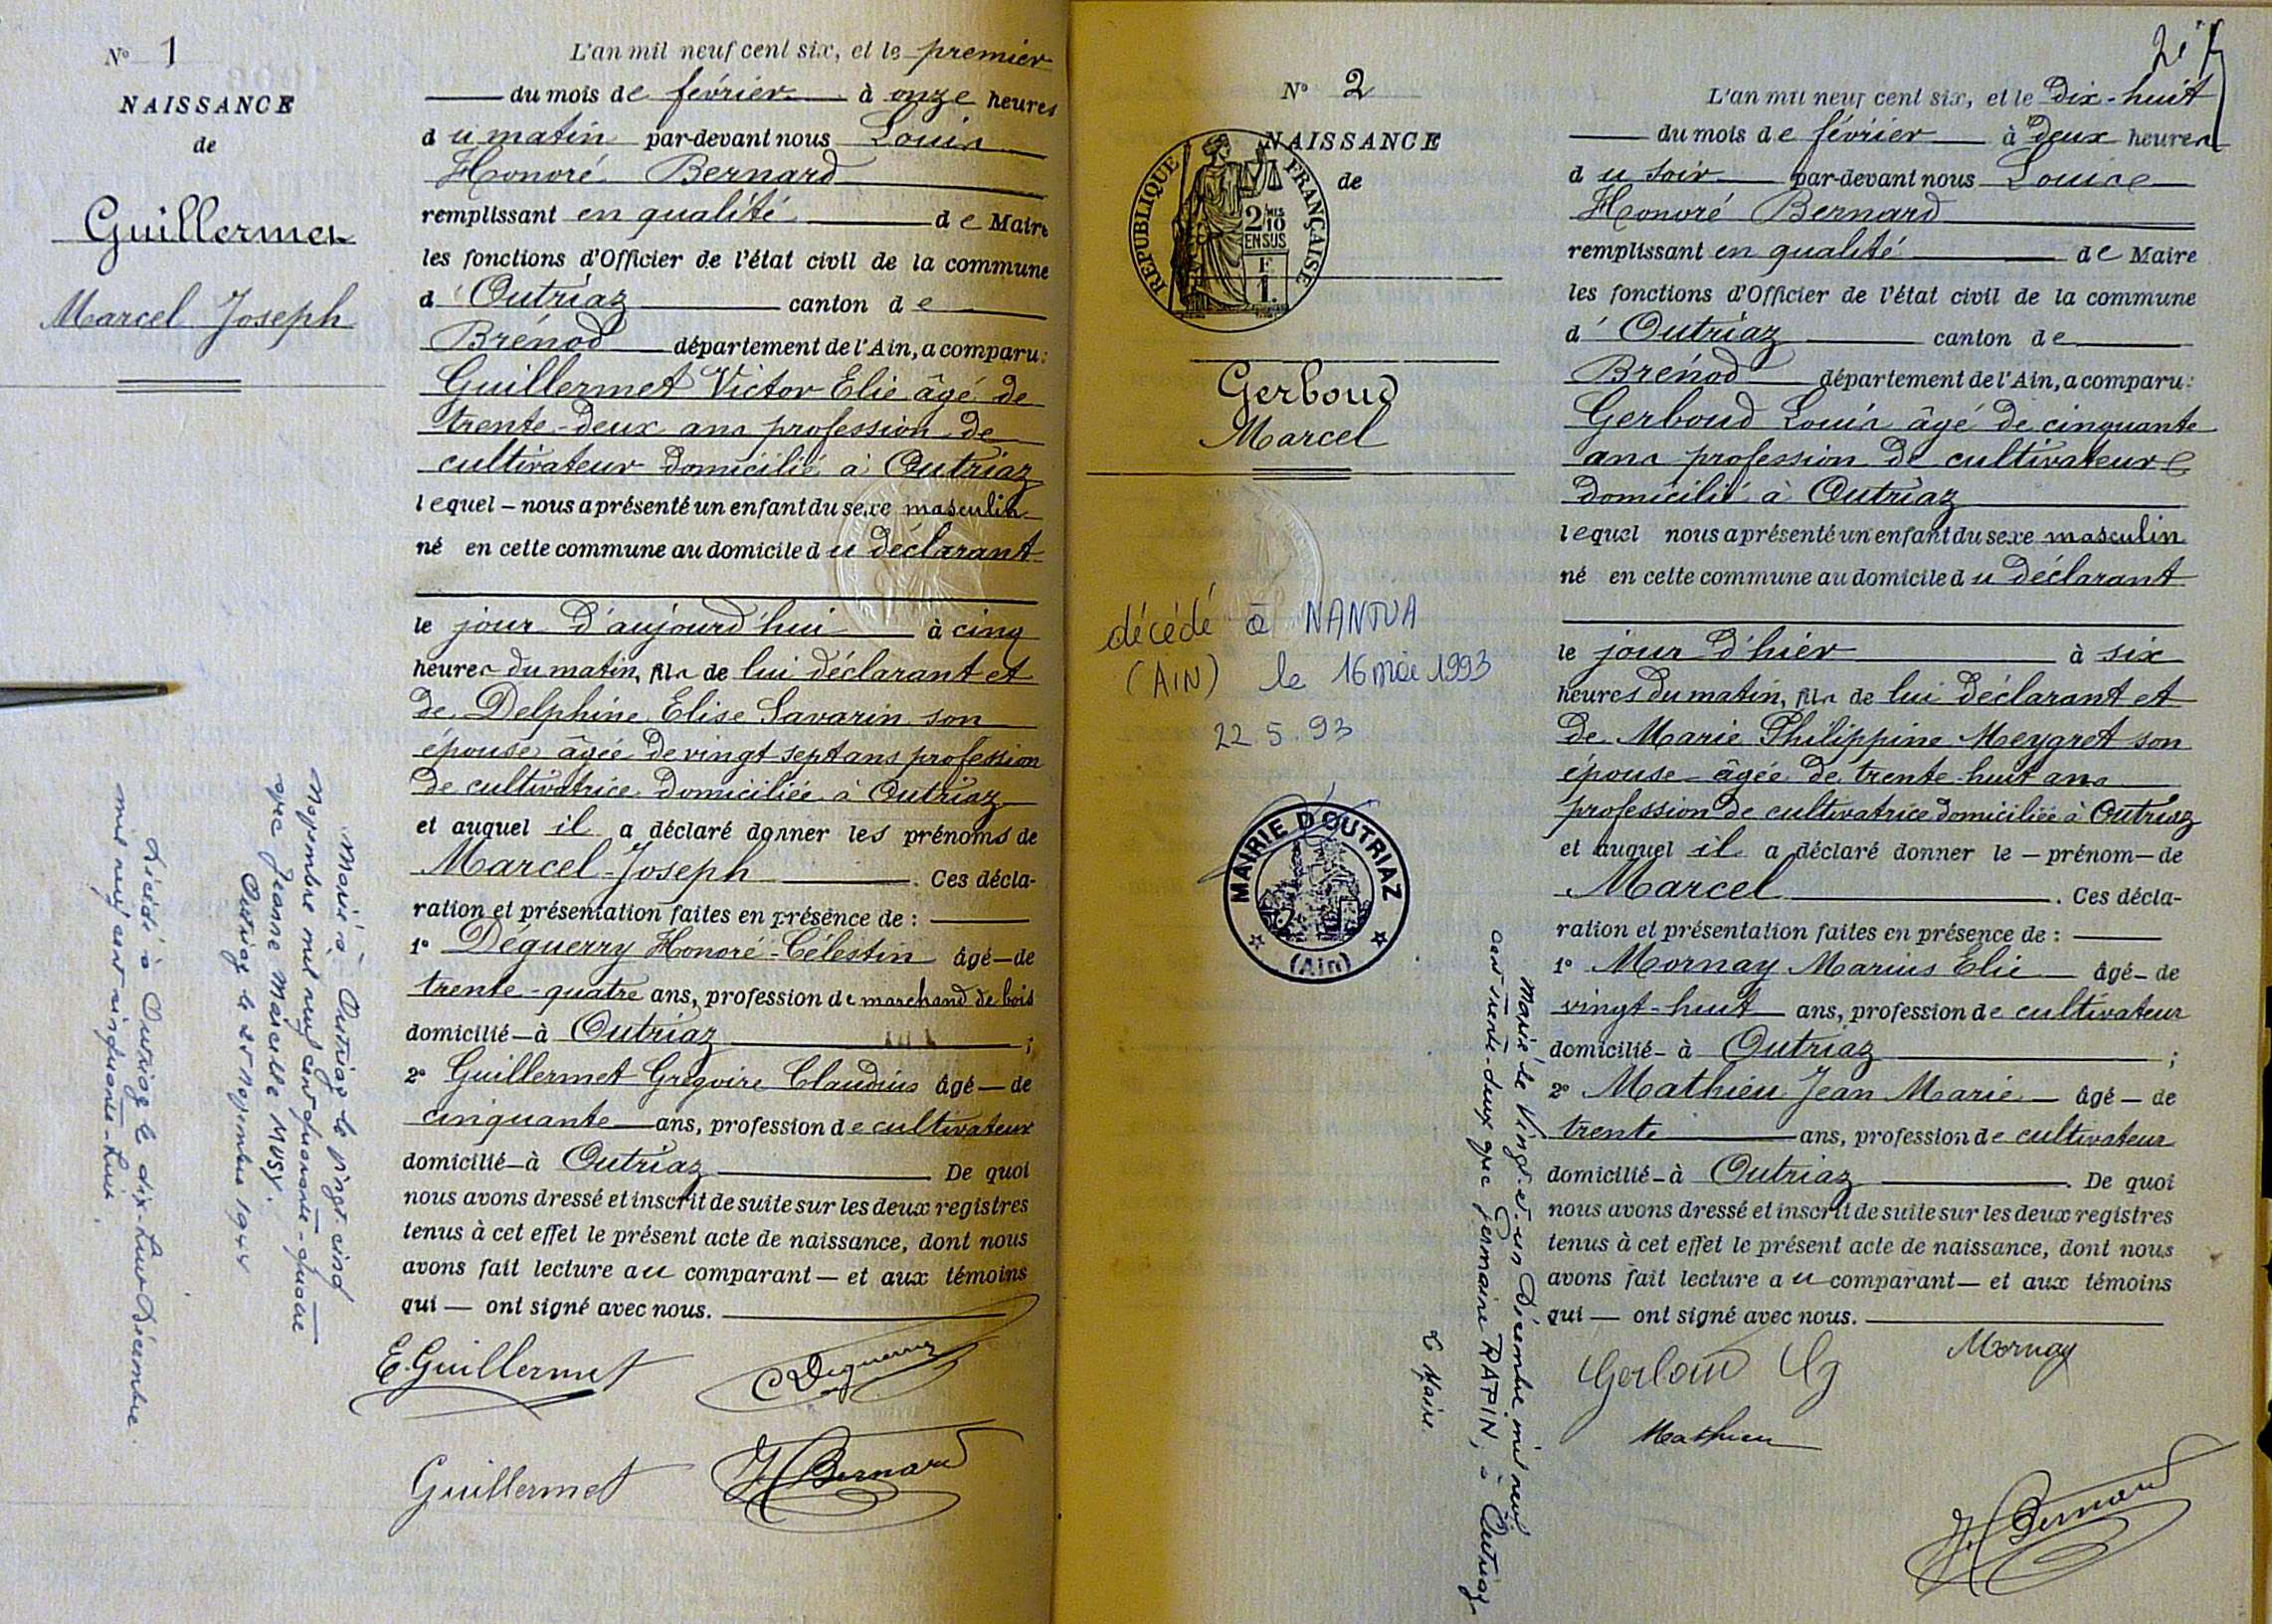 N° 1
NAISSANCE
de
Guillermet
Marcel Joseph
L'an mil neuf cent six, et le premier
du mois de février à onze heures
du matin par-devant nous Louis
Honoré Bernard
remplissant en qualité de Maire
les fonctions d'Officier de l'état civil de la commune
d'Outriaz canton de
Brénod département de l'Ain, a comparu :
Guillermet Victor Elie âgé de
trente-deux ans profession de
cultivateur domicilié à Outriaz
lequel – nous a présenté un enfant du sexe masculin
né en cette commune au domicile du déclarant
le jour d'aujourd'hui à cinq
heures du matin, fils de lui déclarant et
de Delphine Elise Savarin son
épouse âgée de vingt sept ans profession
de cultivatrice domiciliée à Outriaz
et auquel il a déclaré donner les prénoms de
Marcel-Joseph . Ces décla-
ration et présentation faites en présence de :
1° Déguerry Honoré-Célestin âgé – de
trente-quatre ans, profession de marchand de bois
domicilié – à Outriaz ;
2° Guillermet Grégoire Claudius âgé – de
cinquante ans, profession de cultivateur
domicilié – à Outriaz De quoi
nous avons dressé et inscrit de suite sur les deux registres
tenus à cet effet le présent acte de naissance, dont nous
avons fait lecture au comparant – et aux témoins
qui – ont signé avec nous.
E. Guillermet C Déguerry
Guillermet H Bernard
Marié à Outriaz le vingt-cinq
Novembre mil neuf cent quarante-quatre
avec Jeanne Marcelle MUSY.
Outriaz le 25 Novembre 1944
Décédé à Outriaz le dix-huit Décembre
mil neuf cent cinquante-huit.
N° 2
NAISSANCE
de
RÉPUBLIQUE FRANÇAISE
2/10 MES
EN SUS
F
1.
Gerboud
Marcel
décédé à NANTUA
(AIN) le 16 mai 1993
22.5.93
MAIRIE D'OUTRIAZ
(Ain)
Marié le Vingt-et-un Décembre mil neuf
cent trente-deux avec Germaine RAPIN, à Outriaz
Le Maire.
L'an mil neuf cent six, et le dix-huit
du mois de février à deux heures
du soir par-devant nous Louis
Honoré Bernard
remplissant en qualité de Maire
les fonctions d'Officier de l'état civil de la commune
d'Outriaz canton de
Brénod département de l'Ain, a comparu :
Gerboud Louis âgé de cinquante
ans profession de cultivateur
domicilié à Outriaz
lequel nous a présenté un enfant du sexe masculin
né en cette commune au domicile du déclarant
le jour d'hier à six
heures du matin, fils de lui déclarant et
de Marie Philippine Meygret son
épouse âgée de trente-huit ans
profession de cultivatrice domiciliée à Outriaz
et auquel il a déclaré donner le – prénom – de
Marcel . Ces décla-
ration et présentation faites en présence de :
1° Mornay Marius Elie âgé – de
vingt-huit ans, profession de cultivateur
domicilié – à Outriaz ;
2° Mathieu Jean Marie âgé – de
trente ans, profession de cultivateur
domicilié – à Outriaz . De quoi
nous avons dressé et inscrit de suite sur les deux registres
tenus à cet effet le présent acte de naissance, dont nous
avons fait lecture au comparant – et aux témoins
qui – ont signé avec nous.
Mornay
Mathieu
H. Bernard